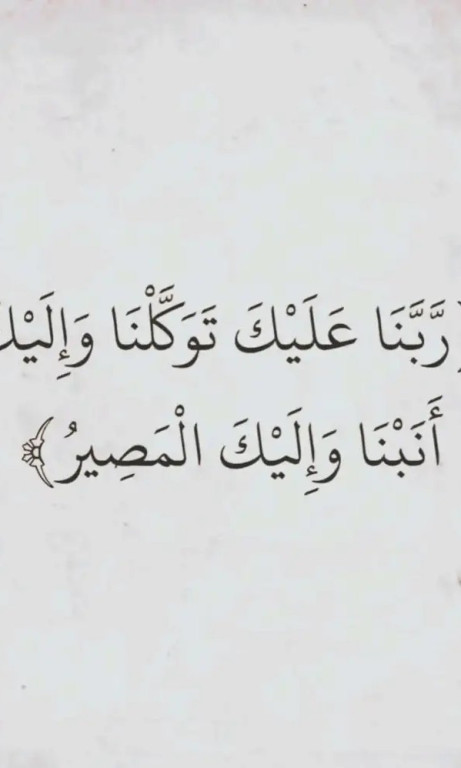 رَّبَّنَا عَلَيْكَ تَوَكَّلْنَا وَإِلَيْكَ
أَنَبْنَا وَإِلَيْكَ الْمَصِيرُ﴾